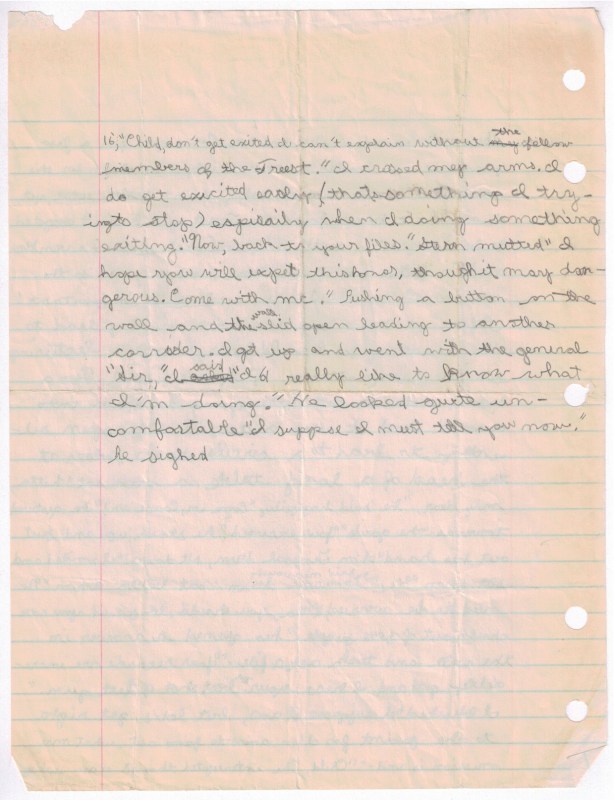 16, "Child, don't get exited I can't explain without the fellow
members of the Treest." I crossed mey arms. I
do get excited easly (thats something I try-
ingto stop) espisaily when I doing something
exiting. "Now, back to your files." Stern mutted "I
hope you will expect this honor, though it may dan-
gerous. Come with me." Pushing a button on the
wall and the wall slid open leading to another
corroder. I got up and went with the general
"Sir," I said "I'd really like to know what
I'm doing." He looked quite un-
comfortable "I suppose I must tell you now."
he sighed